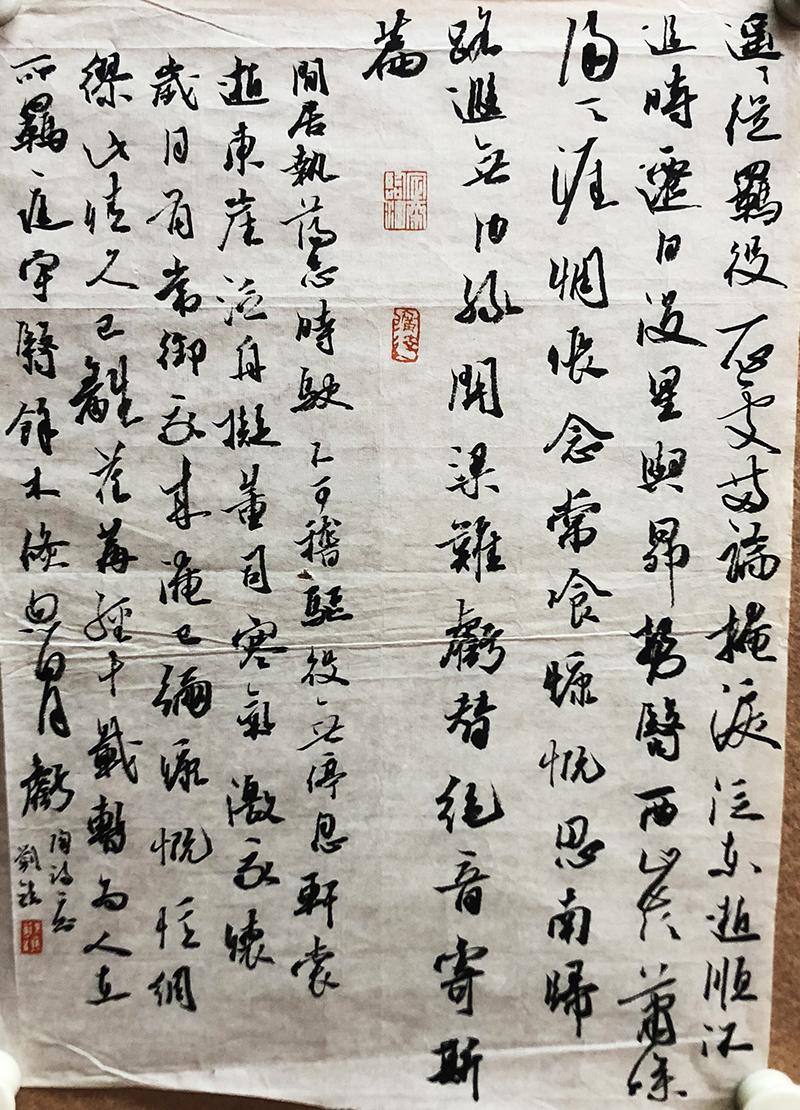 遥〻從羈役一心處兩端掩淚泛東逝順流
追時遷日没星與昴勢翳西山巔蕭條
隔天涯惆悵念常飡慷慨思南歸
路遐無由緣關梁難虧替絕音寄斯
篇
閒居執蕩志時駛不可稽驅役無停息軒裳
逝東崖泛舟擬董司寒氣激我懷
歲月有常御我来淹已彌慷慨憶綢
繆此情久已離荏苒經十載暫為人
所羈庭宇翳餘木倏忽日月虧
陶詩二首